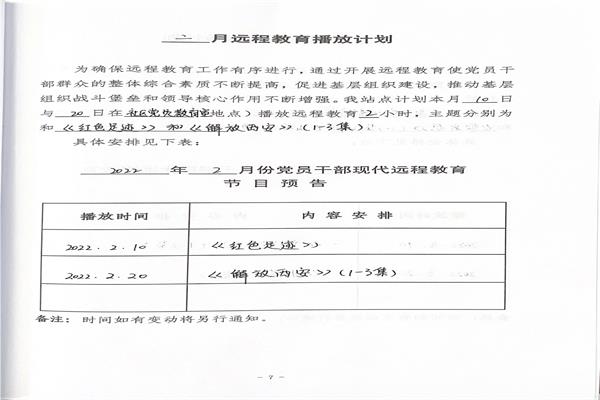 二 月远程教育播放计划
为确保远程教育工作有序进行，通过开展远程教育使党员干
部群众的整体综合素质不断提高，促进基层组织建设，推动基层
组织战斗堡垒和领导核心作用不断增强。我站点计划本月 10 日
与 20 日在 社区党员教育室（地点）播放远程教育 2 小时，主题分别为
和《红色足迹》和《解放西安》(1-3集)
具体安排见下表：
2022 年 2 月份党员干部现代远程教育
节目预告
播放时间 内容安排
2022.2.10 《红色足迹》
2022.2.20 《解放西安》(1-3集)
备注：时间如有变动将另行通知。
- 7 -